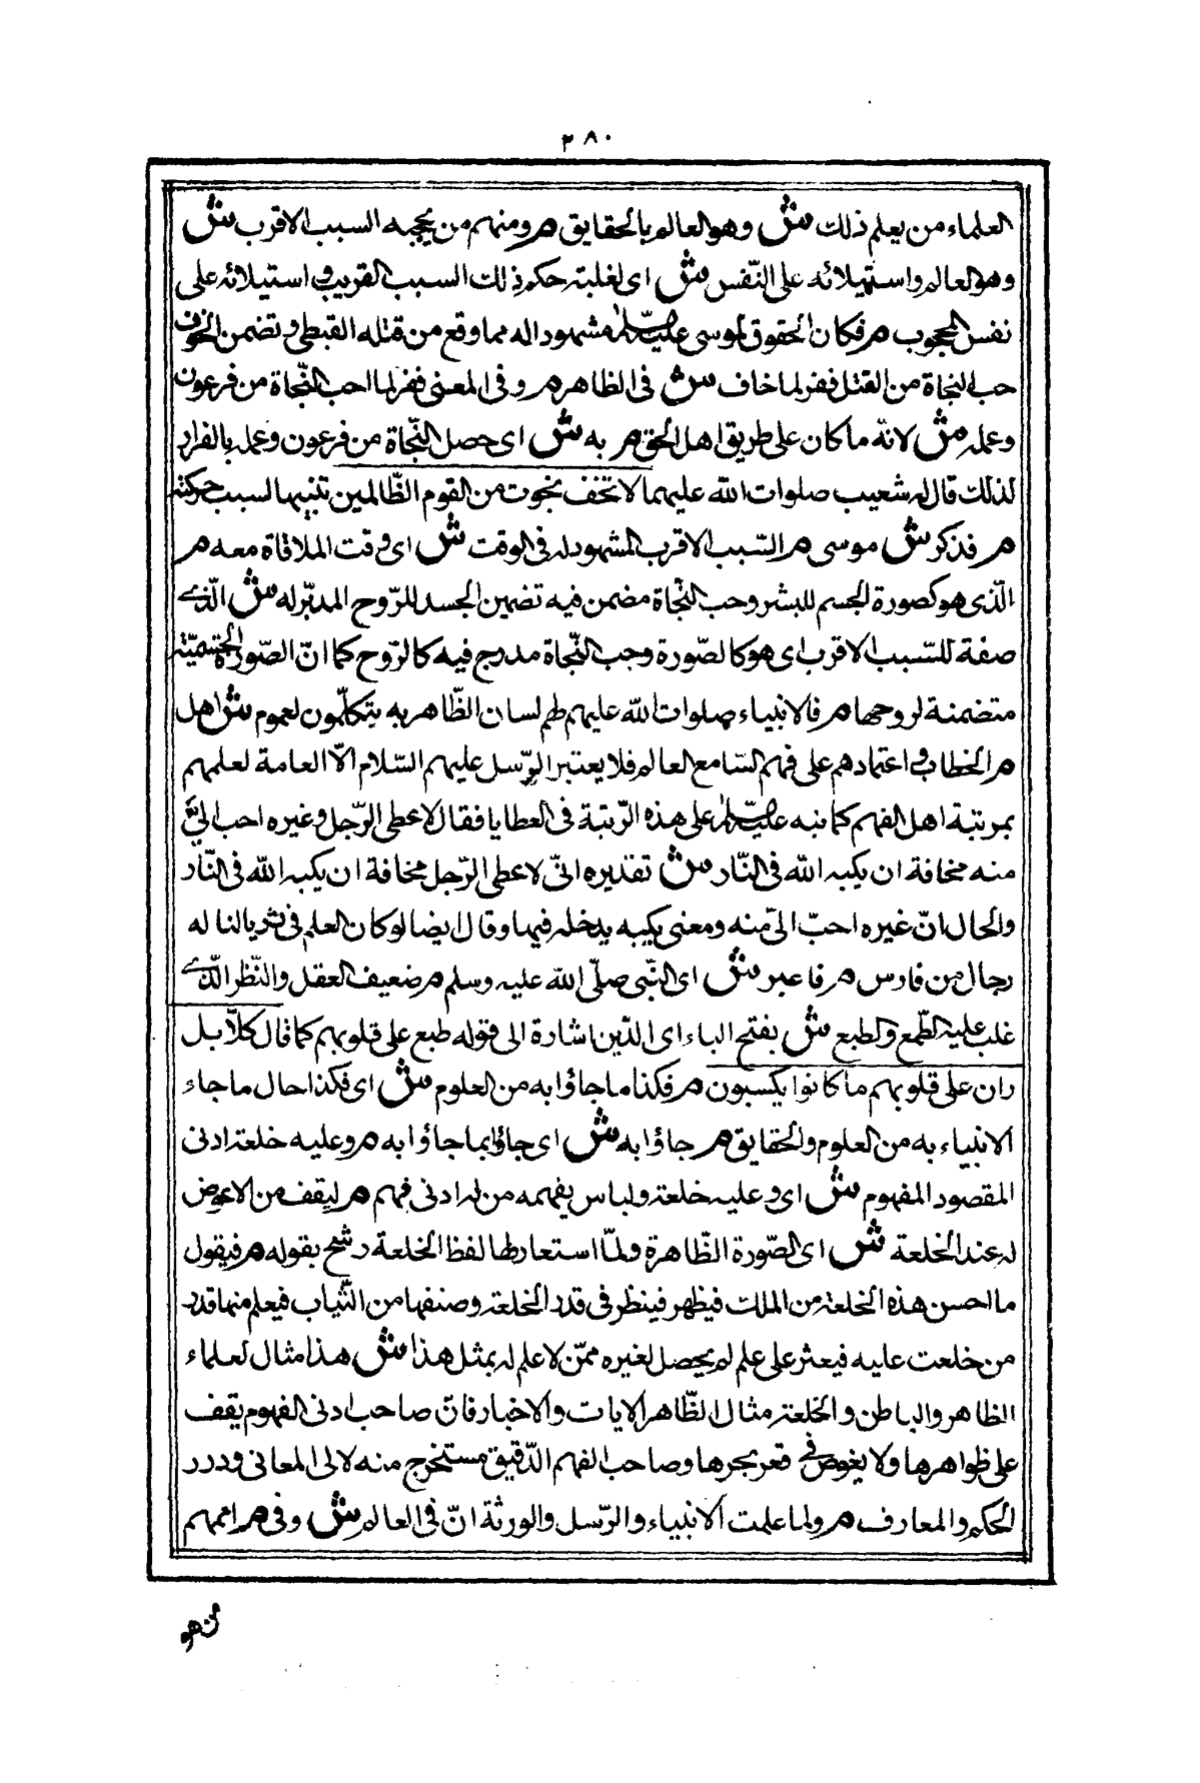 ٢٨٠
العلماء من يعلم ذلك ش وهو العالم بالحقايق م ومنهم من يحجبه السبب الاقرب ش
وهو العالم واستيلائه على النّفس ش اى لغلبة حكم ذلك السبب القريب فى استيلائه على
نفس المحجوب م فكان الحقوق لموسى عليه السلام مشهودا له مما وقع من قتله القبطى وتضمن الخوف
حب النجاة من القتل ففر لما خاف ش فى الظاهر م وفى المعنى ففر لما احب النّجاة من فرعون
وعمله ش لانّه ما كان على طريق اهل الحق م به ش اى حصل النّجاة من فرعون وعمله بالفرار
لذلك قال له شعيب صلوات الله عليهما لا تخف نجوت من القوم الظّالمين تنبيها لسبب حركته
م فذكر ش موسى م السّبب الاقرب المشهود له فى الوقت ش اى وقت الملاقاة معه م
الّذى هو كصورة الجسم للبشر وحب النّجاة مضمن فيه تضمين الجسد للرّوح المدبّر له ش الّذى
صفة للسّبب الاقرب اى هو كالصّورة وحب النّجاة مدرج فيه كالرّوح كما انّ الصّورة الجسميّة
متضمنة لروحها م فالانبياء صلوات الله عليهم لهم لسان الظّاهر به يتكلّمون لعموم ش اهل
م الخطاب واعتمادهم على فهم السّامع العالم فلا يعتبر الرّسل عليهم السّلام الّا العامة لعلمهم
بمرتبة اهل الفهم كما نبه عليه السلام على هذه الرّتبة فى العطايا فقال لاعطى الرّجل وغيره احب الىّ
منه مخافة ان يكبه الله فى النّار ش تقديره انّى لاعطى الرّجل مخافة ان يكبه الله فى النّار
والحال انّ غيره احبّ الىّ منه ومعنى يكبه يدخله فيها وقال ايضا لو كان العلم فى ثريا لناله
رجال من فارس م فاعبر ش اى النّبى صلّى الله عليه وسلم م ضعيف العقل والنّظر الّذى
غلب عليه الطّمع والطبع ش بفتح الباء اى الدّين اشارة الى قوله طبع على قلوبهم كما قال كلّا بل
ران على قلوبهم ما كانوا يكسبون م فكذا ما جاؤا به من العلوم ش اى فكذا حال ما جاء
الانبياء به من العلوم والحقايق م جاؤا به ش اى جاؤا بما جاؤا به م وعليه خلعة ادنى
المقصود المفهوم ش اى وعليه خلعة ولباس يفهمه من له ادنى فهم م ليقف من لا غوض
له عند الخلعة ش اى الصّورة الظّاهرة ولمّا استعار لها لفظ الخلعة رشح بقوله م فيقول
ما احسن هذه الخلعة من الملك فيظهر فينظر فى قدر الخلعة وصنفها من الثّياب فيعلم منها قدر
من خلعت عليه فيعثر على علم لم يحصل لغيره ممّن لا علم له بمثل هذا ش هذا مثال لعلماء
الظاهر والباطن والخلعة مثال الظّاهر الايات والاخبار فانّ صاحب ادنى الفهوم يقف
على ظواهرها ولا يغوض فى قعر بحرها وصاحب الفهم الدّقيق مستخرج منه لالى المعانى ودرر
الحكم والمعارف م ولما علمت الانبياء والرّسل والورثة انّ فى العالم ش وفى م اممهم